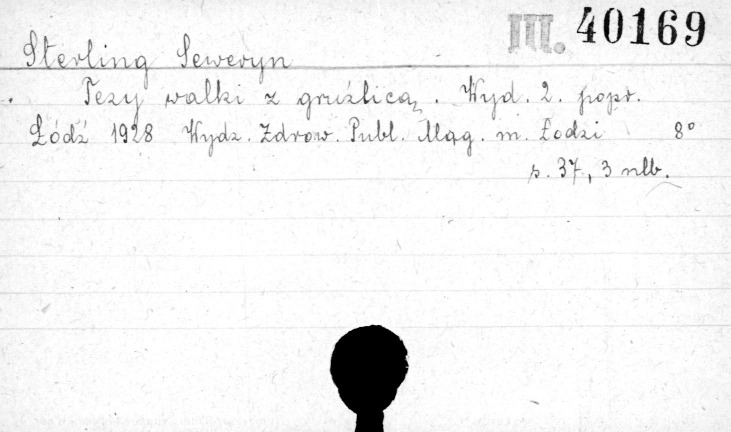 III. 40169
Sterling Seweryn
Tezy walki z gruźlicą. Wyd. 2. popr.
Łódź 1928 Wydz. Zdrow. Publ. Mag. m. Łodzi 8°
s. 37, 3 nlb.